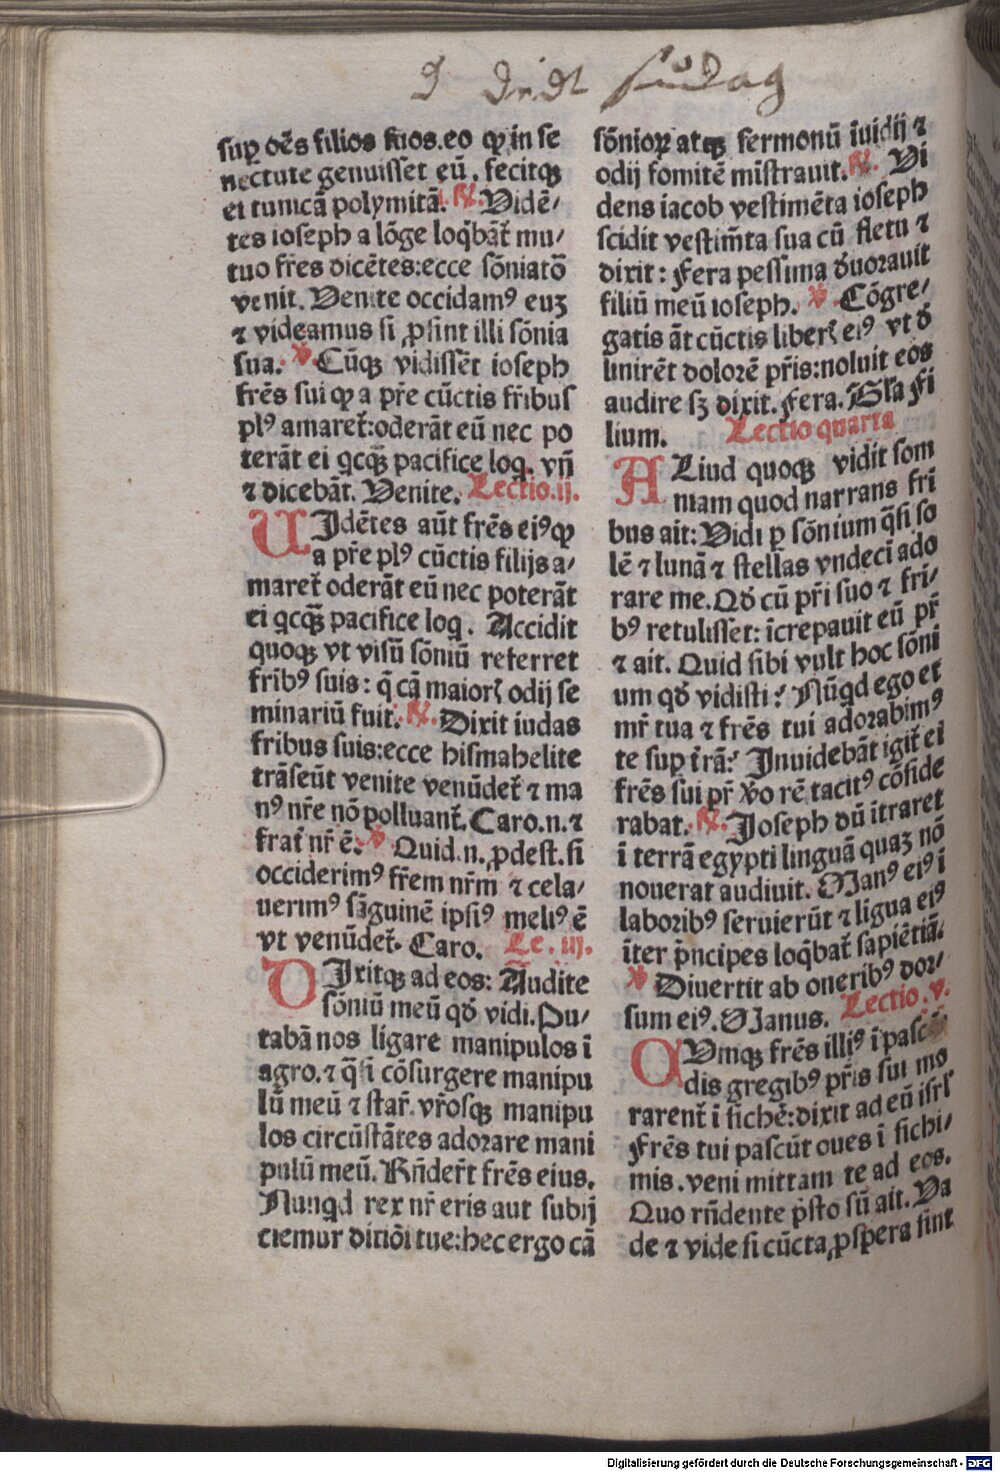 sup oēs filios suos.eo ꝙ in se
nectute genuisset eū. fecitqꝫ
ei tunicā polymitā. ℟. Vidē⸗
tes ioseph a lōge loq̄bāt̄ mu⸗
tuo fr̄es dicētes:ecce sōniatoꝛ
venit. Venite occidamꝰ euꝫ
⁊ videamus si ꝓsint illi sōnia
sua. ℣. Cūqꝫ vidissēt ioseph
frēs sui ꝙ a pr̄e cūctis fr̄ibus
plꝰ amaret̄:oderāt eū nec po
terāt ei qcqꝫ̄ pacifice loq. vn̄
⁊ dicebāt. Venite. Lectio.ij.
UIdētes aūt frēs eiꝰ ꝙ
a pr̄e plꝰ cūctis filijs a⸗
maret̄ oderāt eū nec poterāt
ei qcqꝫ̄ pacifice loq. Accidit
quoqꝫ vt visū sōniū referret
frībꝰ suis: q̄ cā maiorꝭ odij se
minariū fuit. ℟. Dixit iudas
fribus suis:ecce hismahelite
trāseūt venite venūdet̄ ⁊ ma
nꝰ nr̄e nō polluant̄. Caro.n.⁊
frat̄ nr̄ ē. ℣. Quid.n.ꝓdest.si
occiderimꝰ fr̄em nr̄m ⁊ cela⸗
uerimꝰ sāguinē ipsiꝰ meliꝰ ē
vt venūdet̄. Caro. Le.iij.
DIxitqꝫ ad eos: Audite
sōniū meū qd̄ vidi. Pu⸗
tabā nos ligare manipulos ī
agro.⁊ q̄si cōsurgere manipu
lū meū ⁊ star̄. vr̄osqꝫ manipu
los circūstātes adorare mani
pulū meū. Rn̄der̄t frēs eius.
Nunqd rex nr̄ eris aut subij
ciemur ditiōi tue:hec ergo cā
sōnioꝝ atqꝫ sermonū īuidij ⁊
odij fomitē mīstrauit. ℟. Vi
dens iacob vestimēta ioseph
scidit vestim̄ta sua cū fletu ⁊
dixit: Fera pessima d̄uorauit
filiū meū ioseph. ℣. Cōgre⸗
gatis āt cūctis liberꝭ eiꝰ vt d̄
linirēt dolorē pr̄is:noluit eos
audire sꝫ dixit. Fera. Gl̄a Fi
lium. Lectio quarta
ALiud quoqꝫ vidit som
niam quod narrans fri
bus ait: Vidi ꝑ sōnium q̄si so
lē ⁊ lunā ⁊ stellas vndeci ado
rare me. Qd̄ cū pr̄i suo ⁊ fri⸗
bꝰ retulisset: īcrepauit eū pr̄
⁊ ait. Quid sibi vult hoc sōni
um qd̄ vidisti? Nūqd ego et
mr̄ tua ⁊ frēs tui adorabimꝰ
te sup t̄rā? Inuidebāt igit̄ ei
frēs sui pr̄ v̄o rē tacitꝰ cōside
rabat. ℟. Ioseph dū ītraret
ī terrā egypti linguā quaꝫ nō
nouerat audiuit. Manꝰ eiꝰ ī
laboribꝰ seruierūt ⁊ ligua eiꝰ
īter p̄ncipes loq̄bat̄ sapiētiā.
℣ Diuertit ab oneribꝰ dor⸗
sum eiꝰ. Manus. Lectio.v.
CVmqꝫ frēs illiꝰ ī pasc
dis gregibꝰ pr̄is sui mo
rarent̄ ī sichē:dixit ad eū isrl̄
Frēs tui pascūt oues ī sichi⸗
mis.veni mittam te ad eos.
Quo rn̄dente p̄sto sū ait. Va
de ⁊ vide si cūcta ꝓspera sint
Digitalisierung gefördert durch die Deutsche Forschungsgemeinschaft - DFG